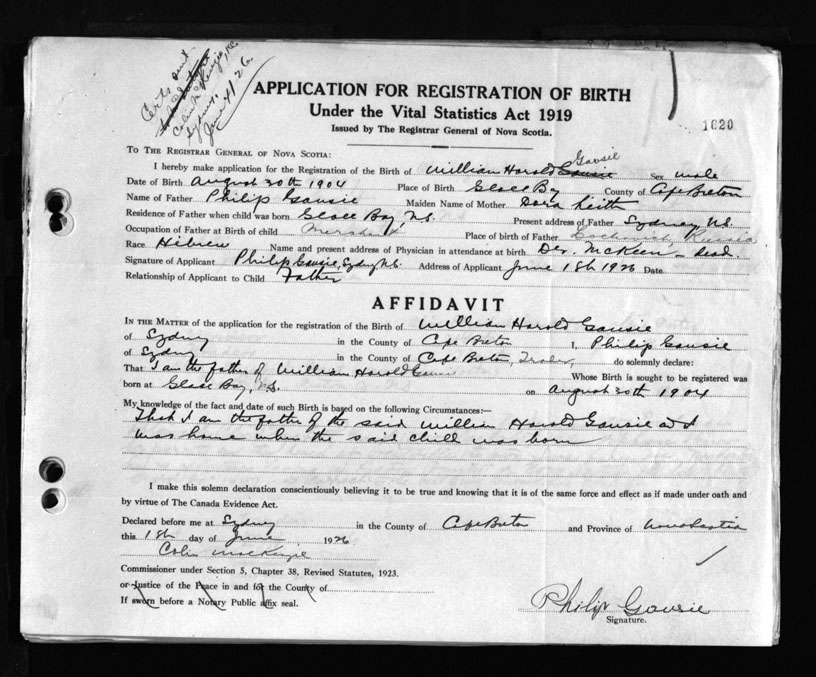 Certs sent
Colin McKenzie, K.C.
Sydney,
June 4/26
APPLICATION FOR REGISTRATION OF BIRTH
Under the Vital Statistics Act 1919
Issued by The Registrar General of Nova Scotia.
1620
TO THE REGISTRAR GENERAL OF NOVA SCOTIA:
Gausie
I hereby make application for the Registration of the Birth of William Harold Gausie Sex male
Date of Birth August 20th 1904 Place of Birth Glace Bay County of Cape Breton
Name of Father Philip Gausie Maiden Name of Mother Dora Keith
Residence of Father when child was born Glace Bay N.S. Present address of Father Sydney N.S.
Occupation of Father at Birth of child Merchant Place of birth of Father Russia
Race Hebrew Name and present address of Physician in attendance at birth Dr. McKeen - dead.
Signature of Applicant Philip Gausie, Sydney N.S. Address of Applicant June 18th 1926 Date
Relationship of Applicant to Child Father
AFFIDAVIT
IN THE MATTER of the application for the registration of the Birth of William Harold Gausie
of Sydney in the County of Cape Breton I, Philip Gausie
of Sydney in the County of Cape Breton, do solemnly declare:
That I am the father of William Harold Gausie Whose Birth is sought to be registered was
born at Glace Bay, N.S. on August 20th 1904
My knowledge of the fact and date of such Birth is based on the following Circumstances:—
That I am the father of the said William Harold Gausie and I
was home when the said child was born
I make this solemn declaration conscientiously believing it to be true and knowing that it is of the same force and effect as if made under oath and
by virtue of The Canada Evidence Act.
Declared before me at Sydney in the County of Cape Breton and Province of Nova Scotia
this 18th day of June 1926
Colin MacKenzie
Commissioner under Section 5, Chapter 38, Revised Statutes, 1923.
or Justice of the Peace in and for the County of
If sworn before a Notary Public affix seal.
Philip Gausie
Signature.